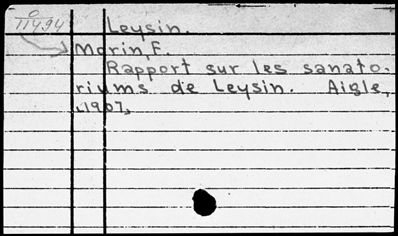 11494
Leysin.
Morin, F.
Rapport sur les sanato-
riums de Leysin. Aigle,
1907.